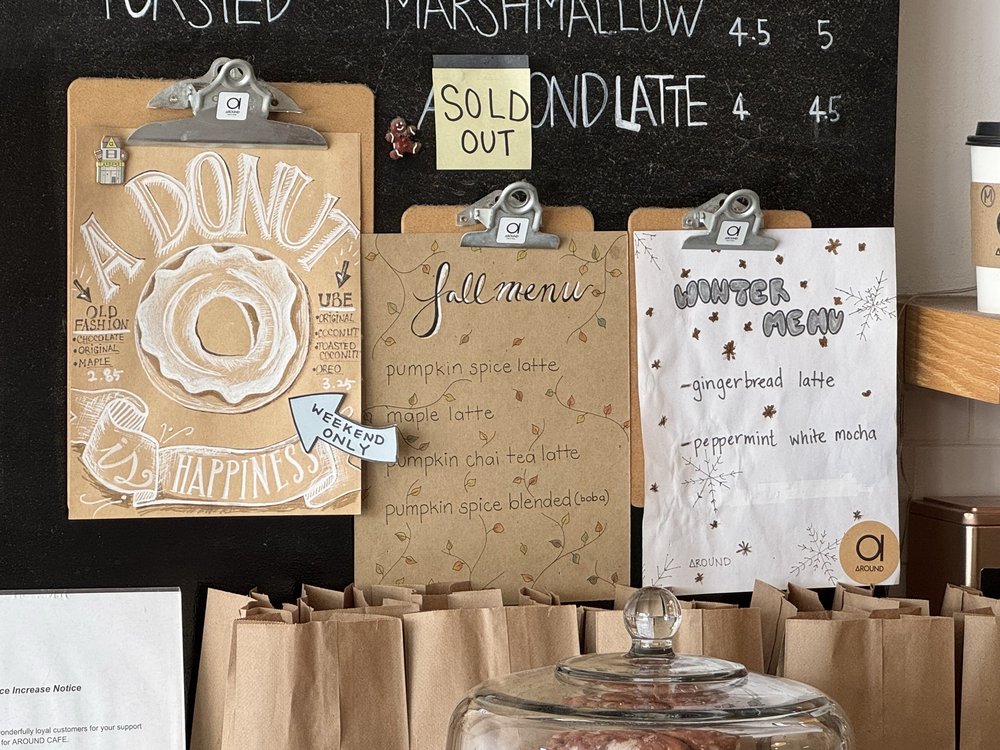 TOASTED MARSHMALLOW 4.5 5
SOLD
OUT
LATTE 4 4.5
a
AROUND
A DONUT
OLD
FASHION
•CHOCOLATE
•ORIGINAL
•MAPLE
2.85
UBE
•ORIGINAL
•COCONUT
•TOASTED
COCONUT
•OREO
3.25
WEEKEND
ONLY
is HAPPINESS
a
AROUND
fall menu
pumpkin spice latte
maple latte
pumpkin chai tea latte
pumpkin spice blended (boba)
a
AROUND
WINTER
MENU
-gingerbread latte
-peppermint white mocha
AROUND
a
AROUND
M
ce Increase Notice
onderfully loyal customers for your support
for AROUND CAFE.